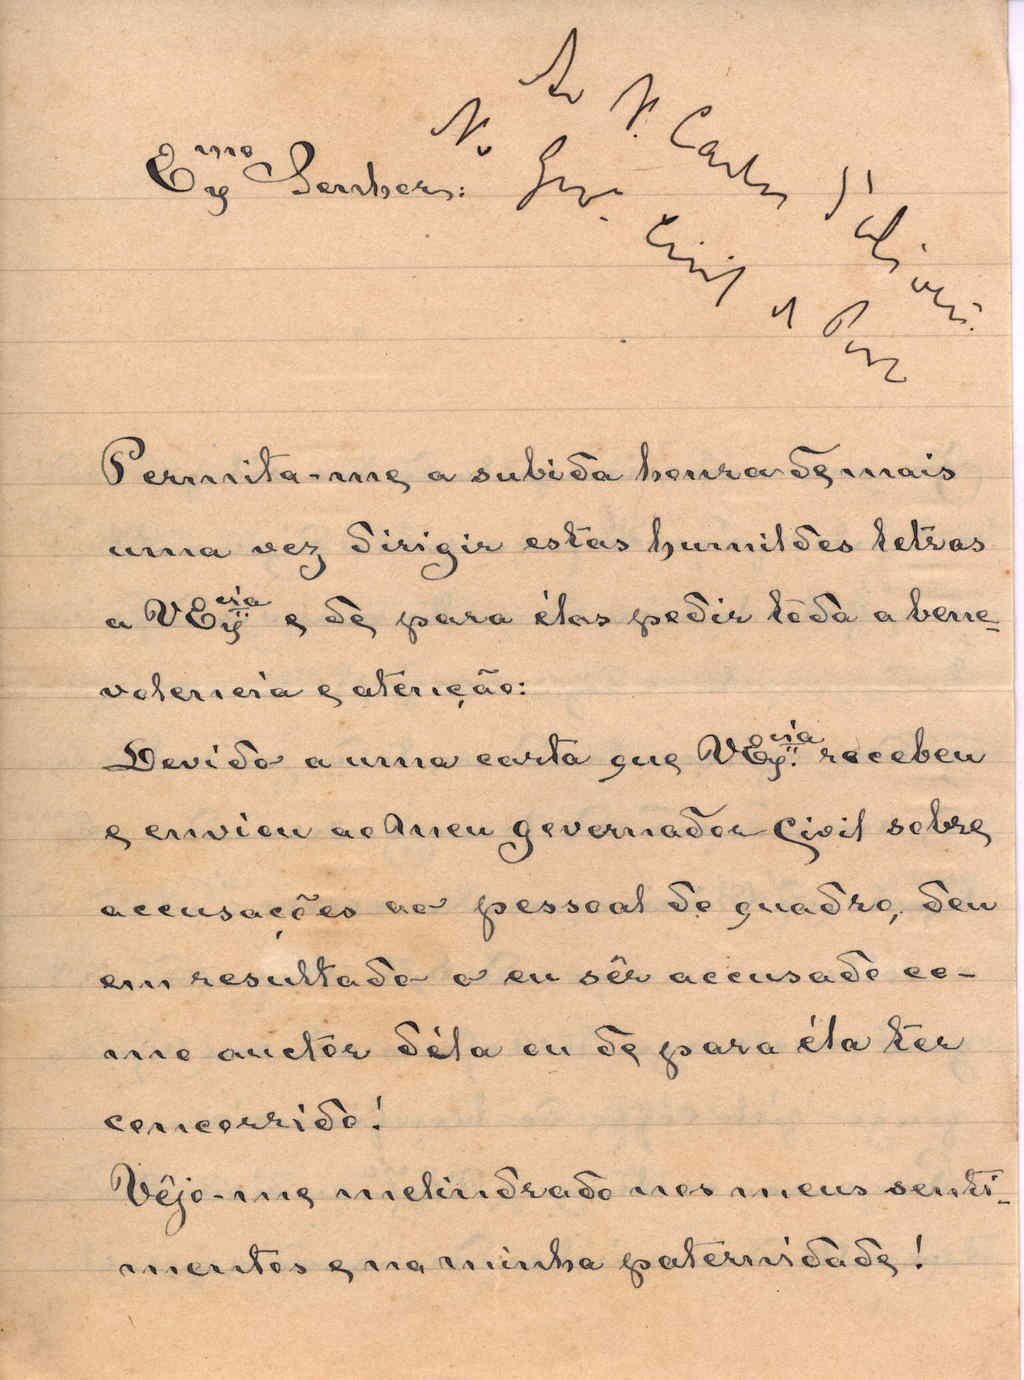 Ao Sr. Carlos d'Oliveira.
No Gov. Civil do Porto
Exmo Senhor:
Permita-me a subida honra de mais
uma vez dirigir estas humildes letras
a VExcia e de para élas pedir tôda a bene-
volencia e atenção:
Devido a uma carta que VExcia. recebeu
e enviou ao Meu governador Civil sobre
accusações ao pessoal do quadro, deu
em resultado o eu sêr accusado co-
mo auctor déla ou de para éla ter
concorrido!
Vêjo-me melindrado nos meus senti-
mentos e na minha paternidade!